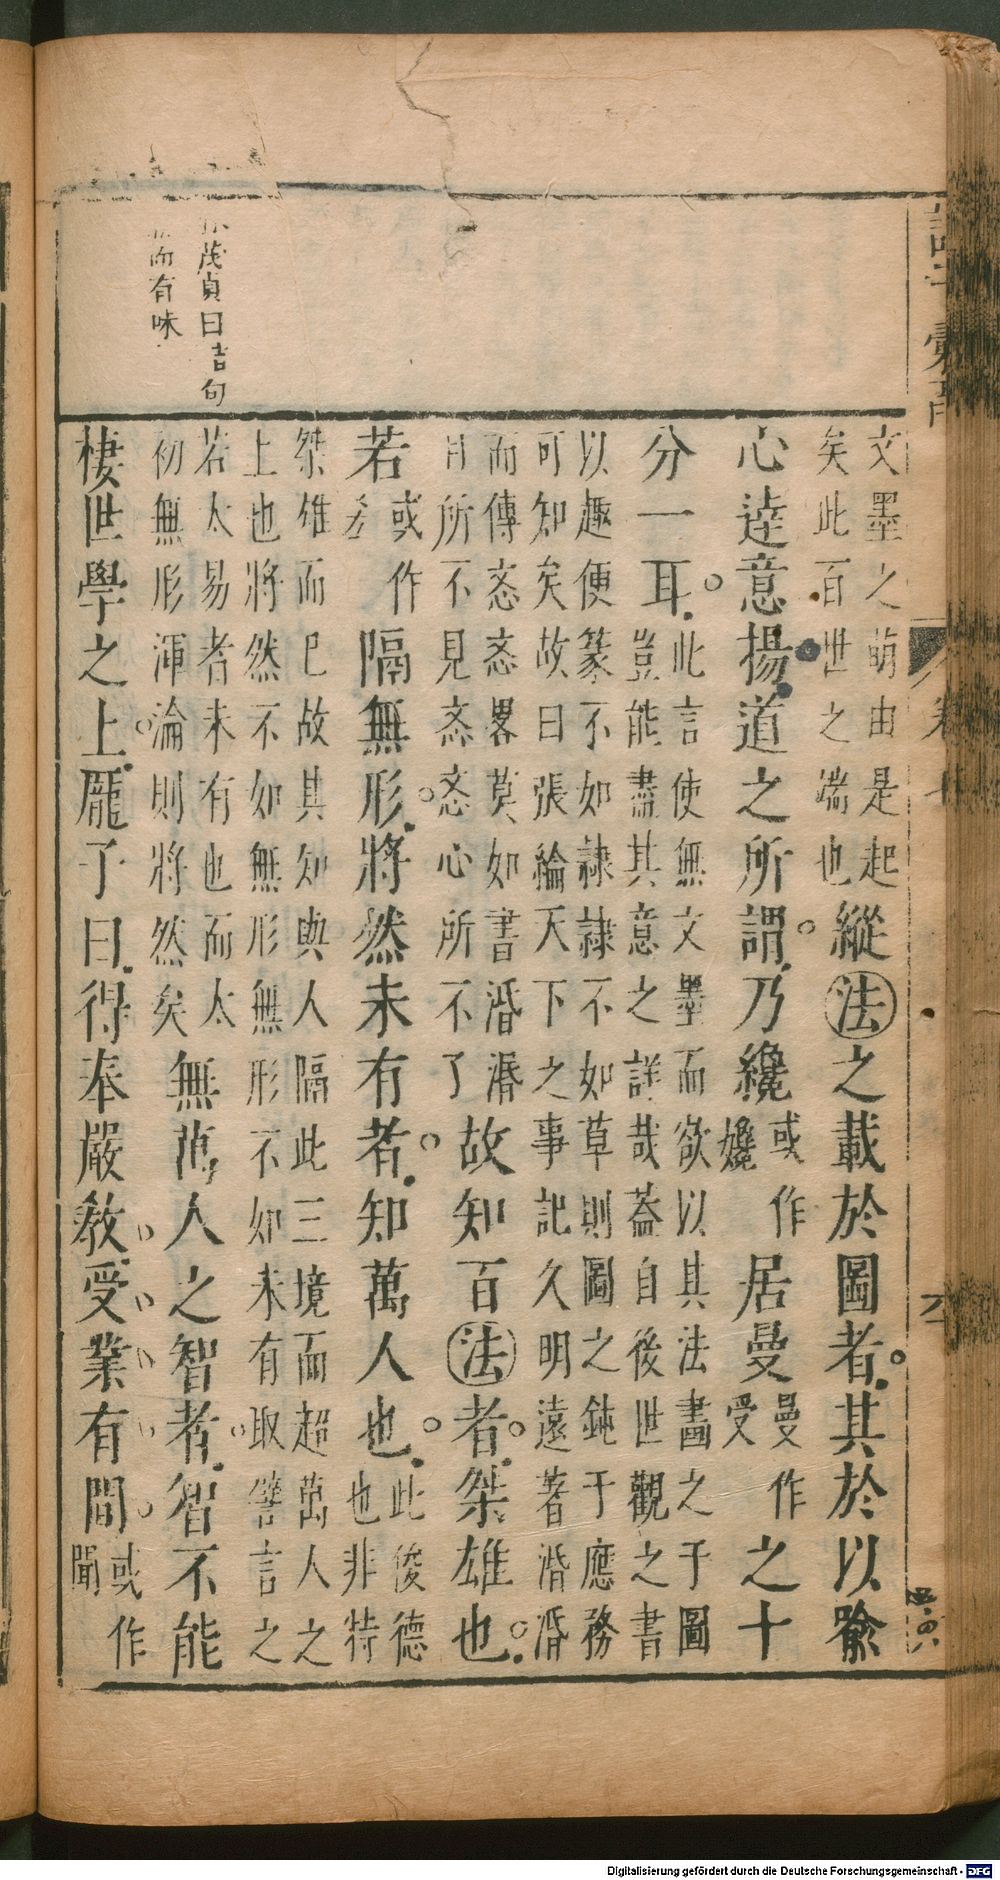 茂貞曰吉句
而有味
文墨之萌由是起
矣此百世之端也
縱法之載於圖者其於以喻
心達意揚道之所謂乃纔
或作
纔
居曼
曼作
受
之十
分一耳
此言使無文墨而欲以其法畫之于圖
豈能盡其意之詳哉葢自後世觀之書
以趣便篆不如隷隷不如草則圖之鈍于應務
可知矣故曰張綸天下之事記久明遠著㖧㖧
而傳忞忞畧莫如書涽涽
目所不見忞忞心所不了
故知百法者桀雄也
若
或作
隔無形將然未有者知萬人也
此俊德
也非特
桀雄而巳故其知與人隔此三境而超萬人之
上也將然不如無形無形不如未有取譬言之
若太易者未有也而太
初無形渾淪則將然矣
無萬人之智者智不能
棲世學之上龎子曰得奉嚴教受業有間
或作
聞
卷七
六
Digitalisierung gefördert durch die Deutsche Forschungsgemeinschaft - DFG